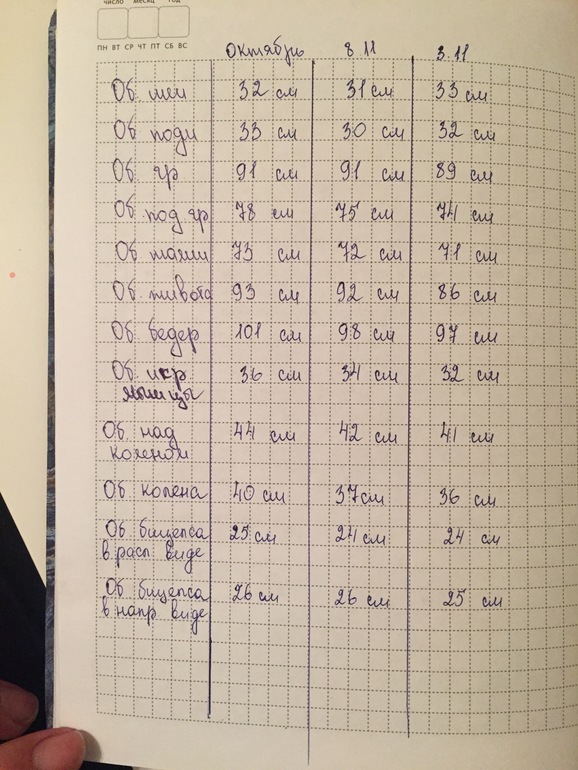 число месяц год
ПН ВТ СР ЧТ ПТ СБ ВС
Октябрь 8.11 3.11
Об. шеи 32 см 31 см 33 см
Об поди 33 см 30 см 32 см
Об гр 91 см 91 см 89 см
Об под гр 78 см 75 см 74 см
Об талии 73 см 72 см 71 см
Об живота 93 см 92 см 86 см
Об бедер 101 см 98 см 97 см
Об. икр 36 см 34 см 32 см
мышцы
Об над 44 см 42 см 41 см
коленом
Об колена 40 см 37 см 36 см
Об бицепса 25 см 24 см 24 см
в расп. виде
Об бицепса 26 см 26 см 25 см
в напр виде